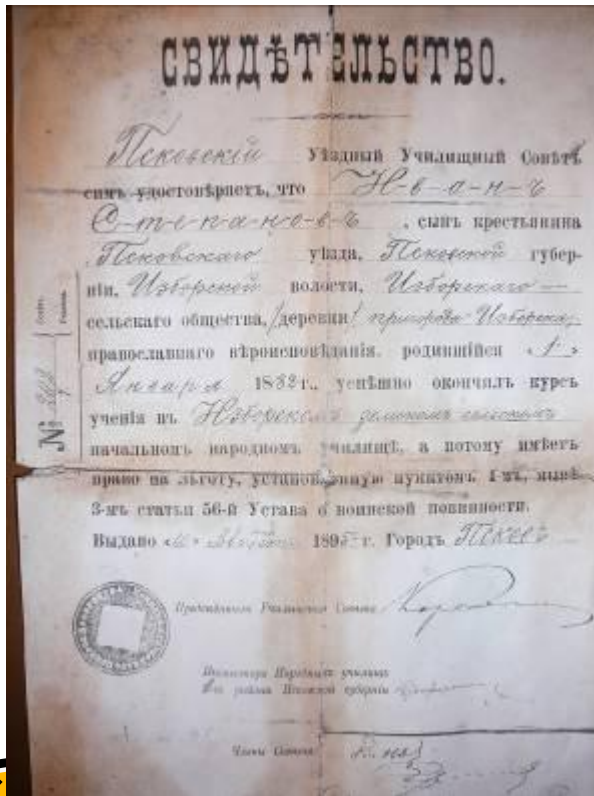 СВИДѢТЕЛЬСТВО.
Псковскій Уѣздный Училищный Совѣтъ
симъ удостовѣряетъ, что И-в-а-н-ъ
С-т-е-п-а-н-о-в-ъ, сынъ крестьянина
Псковскаго уѣзда, Псковской губер-
ніи, Изборской волости, Изборскаго —
сельскаго общества, /деревни/ пригорода Изборска,
православнаго вѣроисповѣданія, родившійся «1»
Января 1882 г., успѣшно окончилъ курсъ
ученія въ Изборскомъ земскомъ сельскомъ
начальномъ народномъ училищѣ, а потому имѣетъ
право на льготу, установленную пунктомъ 4-мъ, нынѣ
3-мъ статьи 56-й Устава о воинской повинности.
Выдано 1895 г. Городъ Псковъ
№
Предсѣдатель Училищнаго Совѣта
Инспекторъ Народныхъ училищъ
уѣзда Псковской губерніи
Члены Совѣта: